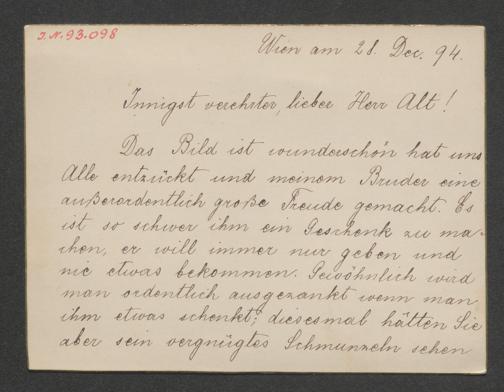 J.N. 93.098
Wien am 28. Dec. 94.
Innigst verehrter, lieber Herr Alt!
Das Bild ist wunderschön hat uns
Alle entzückt und meinem Bruder eine
außerordentlich große Freude gemacht. Es
ist so schwer ihm ein Geschenk zu ma-
chen, er will immer nur geben und
nie etwas bekommen. Gewöhnlich wird
man ordentlich ausgezankt wenn man
ihm etwas schenkt; diesesmal hätten Sie
aber sein vergnügtes Schmunzeln sehen